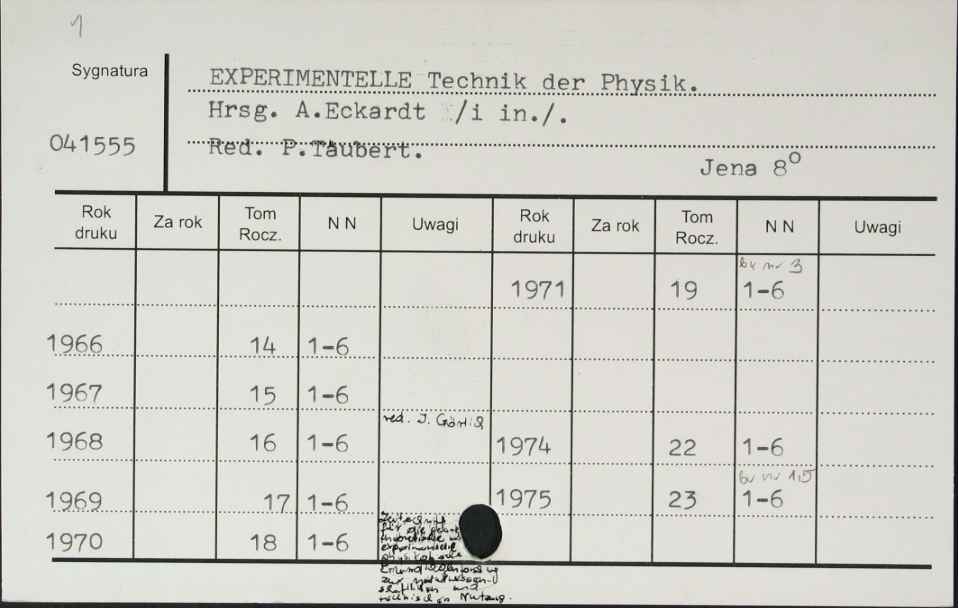 1
Sygnatura
EXPERIMENTELLE Technik der Physik.
Hrsg. A.Eckardt /i in./.
041555
Red. P.Täubert.
Jena 8°
Rok druku Za rok Tom Rocz. N N Uwagi Rok druku Za rok Tom Rocz. N N Uwagi
bez nr 3
1971 19 1-6
1966 14 1-6
1967 15 1-6
red.
1968 16 1-6 1974 22 1-6
nr 1,5
1969 17 1-6 1975 23 1-6
für die
experimentelle
1970 18 1-6
zur
und
Nutzung.